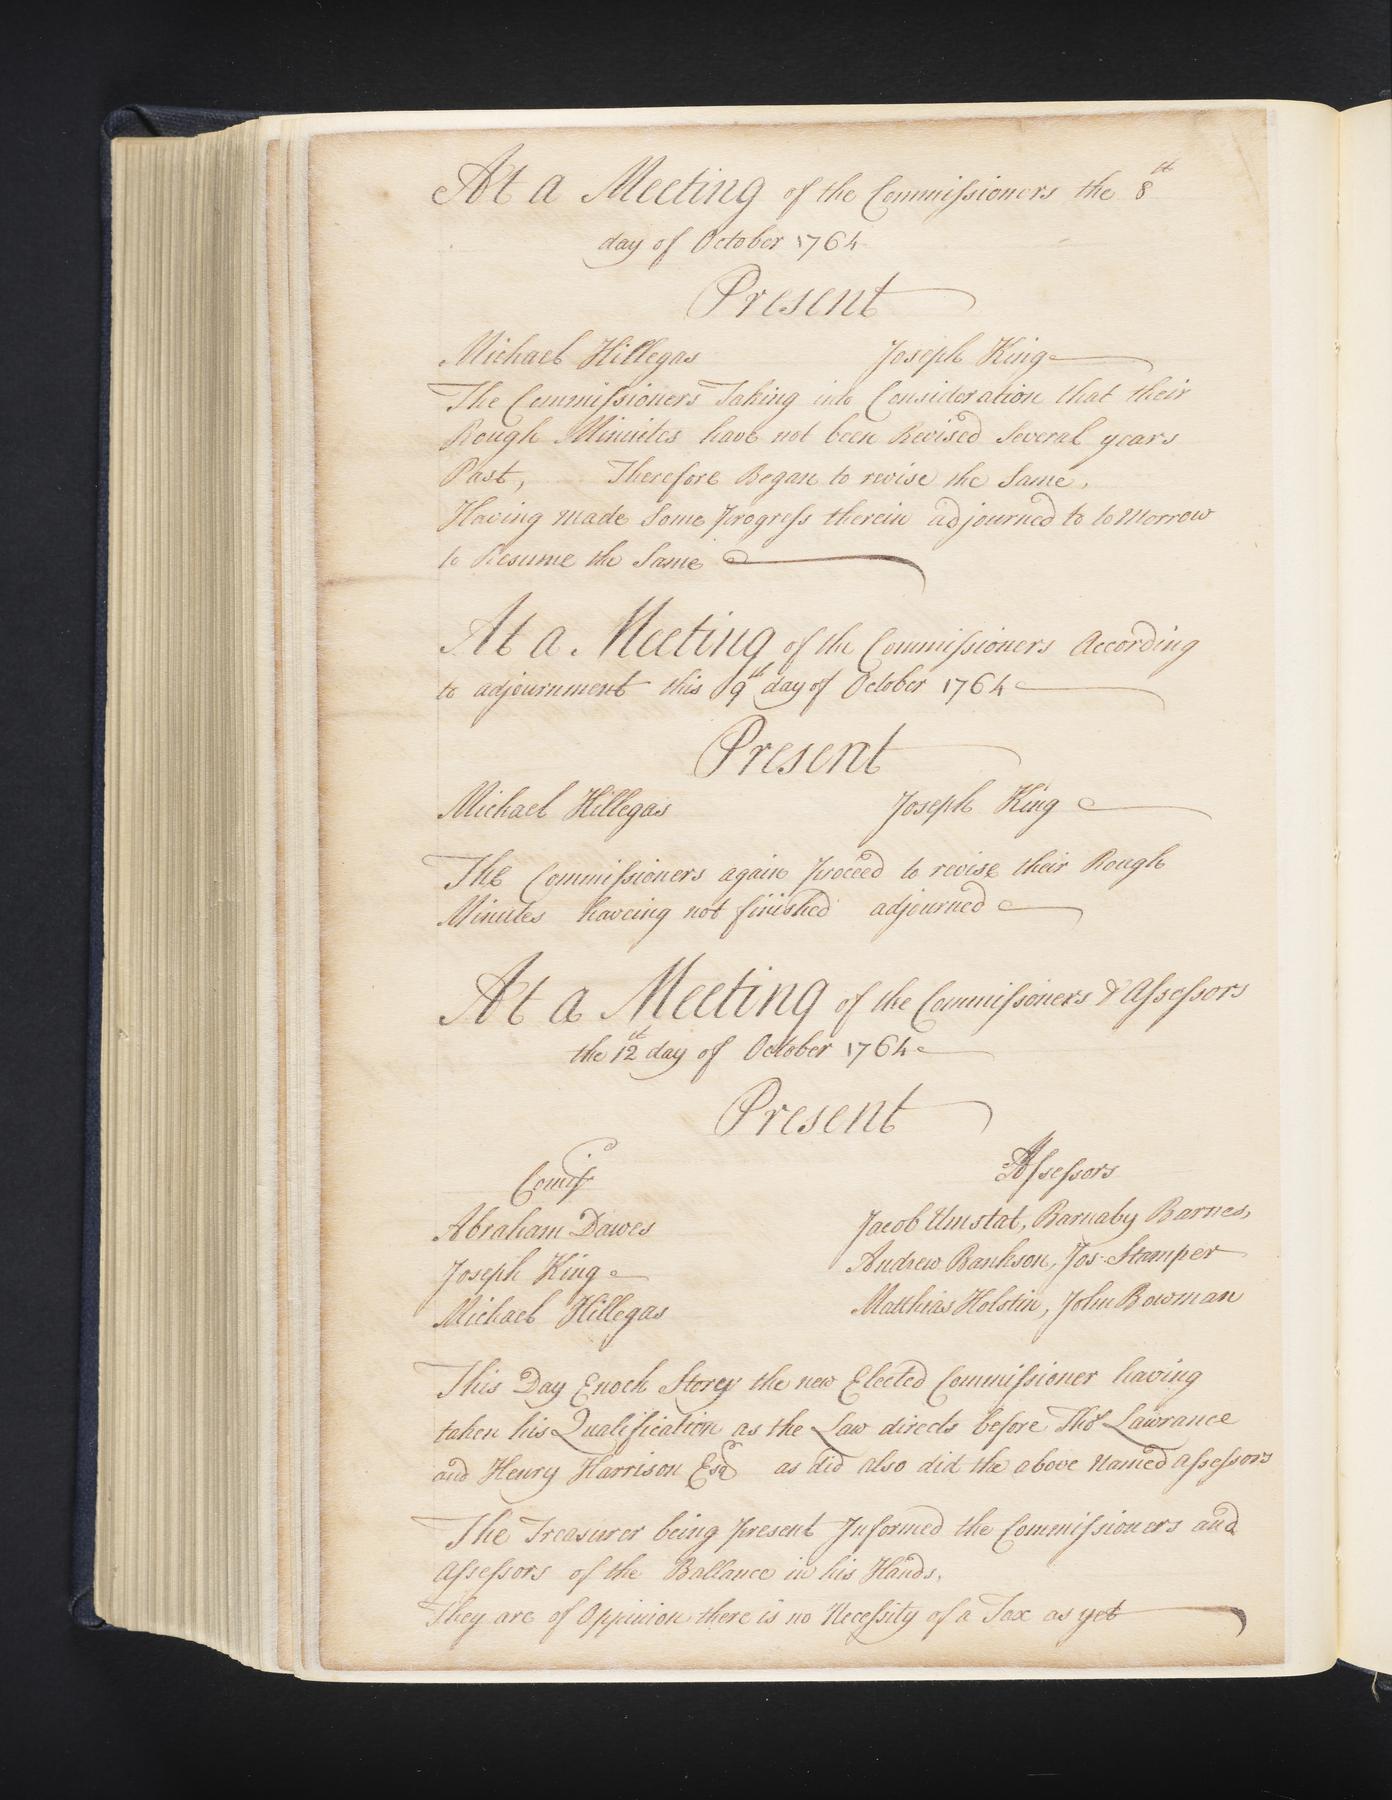 At a Meeting of the Commissioners the 8th
day of October 1764
Present
Michael Hillegas Joseph King
The Commissioners Taking into Consideration that their
Rough Minuites have not been Revised Several years
Past, Therefore Began to revise the Same.
Having made Some progress therein adjourned to to Morrow
to Resume the Same
At a Meeting of the Commissioners According
to adjournment this 9th day of October 1764
Present
Michael Hillegas Joseph King
The Commissioners again proceed to revise their Rough
Minutes haveing not finished adjourned
At a Meeting of the Commissioners & Assessors
the 12th day of October 1764
Present
Comrs Assessors
Abraham Dawes Jacob Umstat, Barnaby Barnes,
Joseph King Andrew Bankson, Jos. Stamper
Michael Hillegas Matthias Holstin, John Bowman
This Day Enoch Storey the new Elected Commissioner having
taken his Qualification as the Law directs before Thos Lawrance
and Henry Harrison Esqr as did also did the above Named assessors
The Treasurer being present Informed the Commissioners and
Assessors of the Ballance in his Hands.
They are of Oppinion there is no Necessity of a Tax as yet